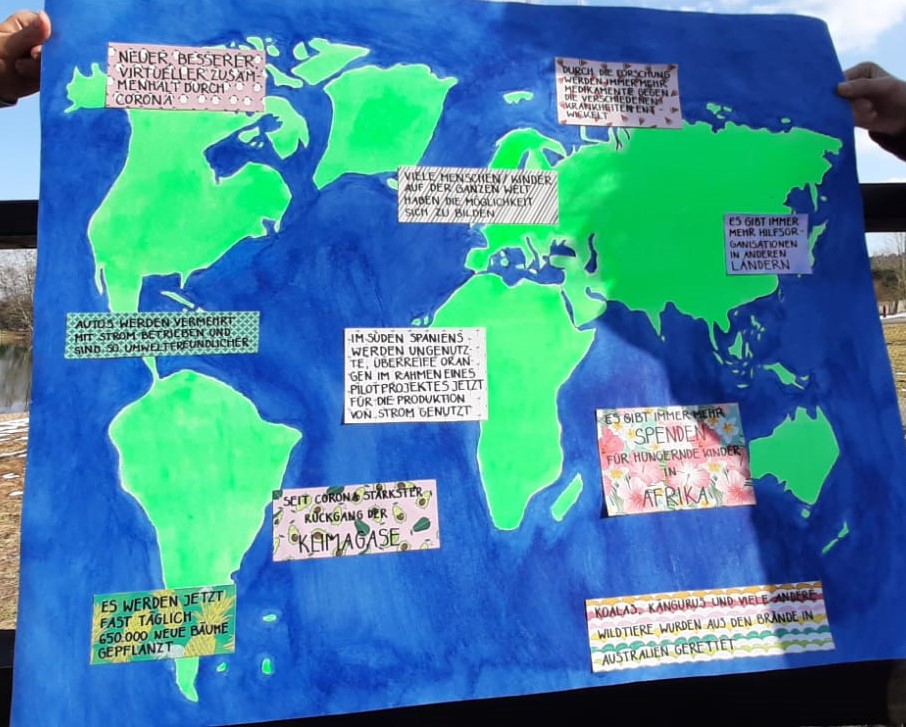 NEUER, BESSERER
VIRTUELLER ZUSAM-
MENHALT DURCH
CORONA
DURCH DIE FORSCHUNG
WERDEN IMMER MEHR
MEDIKAMENTE GEGEN
DIE VERSCHIEDENEN
KRANKHEITEN ENT-
WICKELT
VIELE MENSCHEN / KINDER
AUF DER GANZEN WELT
HABEN DIE MÖGLICHKEIT
SICH ZU BILDEN
ES GIBT IMMER
MEHR HILFSOR-
GANISATIONEN
IN ANDEREN
LÄNDERN
AUTOS WERDEN VERMEHRT
MIT STROM BETRIEBEN UND
SIND SO UMWELTFREUNDLICHER
IM SÜDEN SPANIENS
WERDEN UNGENUTZ-
TE, ÜBERREIFE ORAN-
GEN IM RAHMEN EINES
PILOTPROJEKTES JETZT
FÜR DIE PRODUKTION
VON STROM GENUTZT
ES GIBT IMMER MEHR
SPENDEN
FÜR HUNGERNDE KINDER
IN
AFRIKA
SEIT CORONA STÄRKSTER
RÜCKGANG DER
KLIMAGASE
ES WERDEN JETZT
FAST TÄGLICH
650.000 NEUE BÄUME
GEPFLANZT
KOALAS, KÄNGURUS UND VIELE ANDERE
WILDTIERE WURDEN AUS DEN BRÄNDE IN
AUSTRALIEN GERETTET